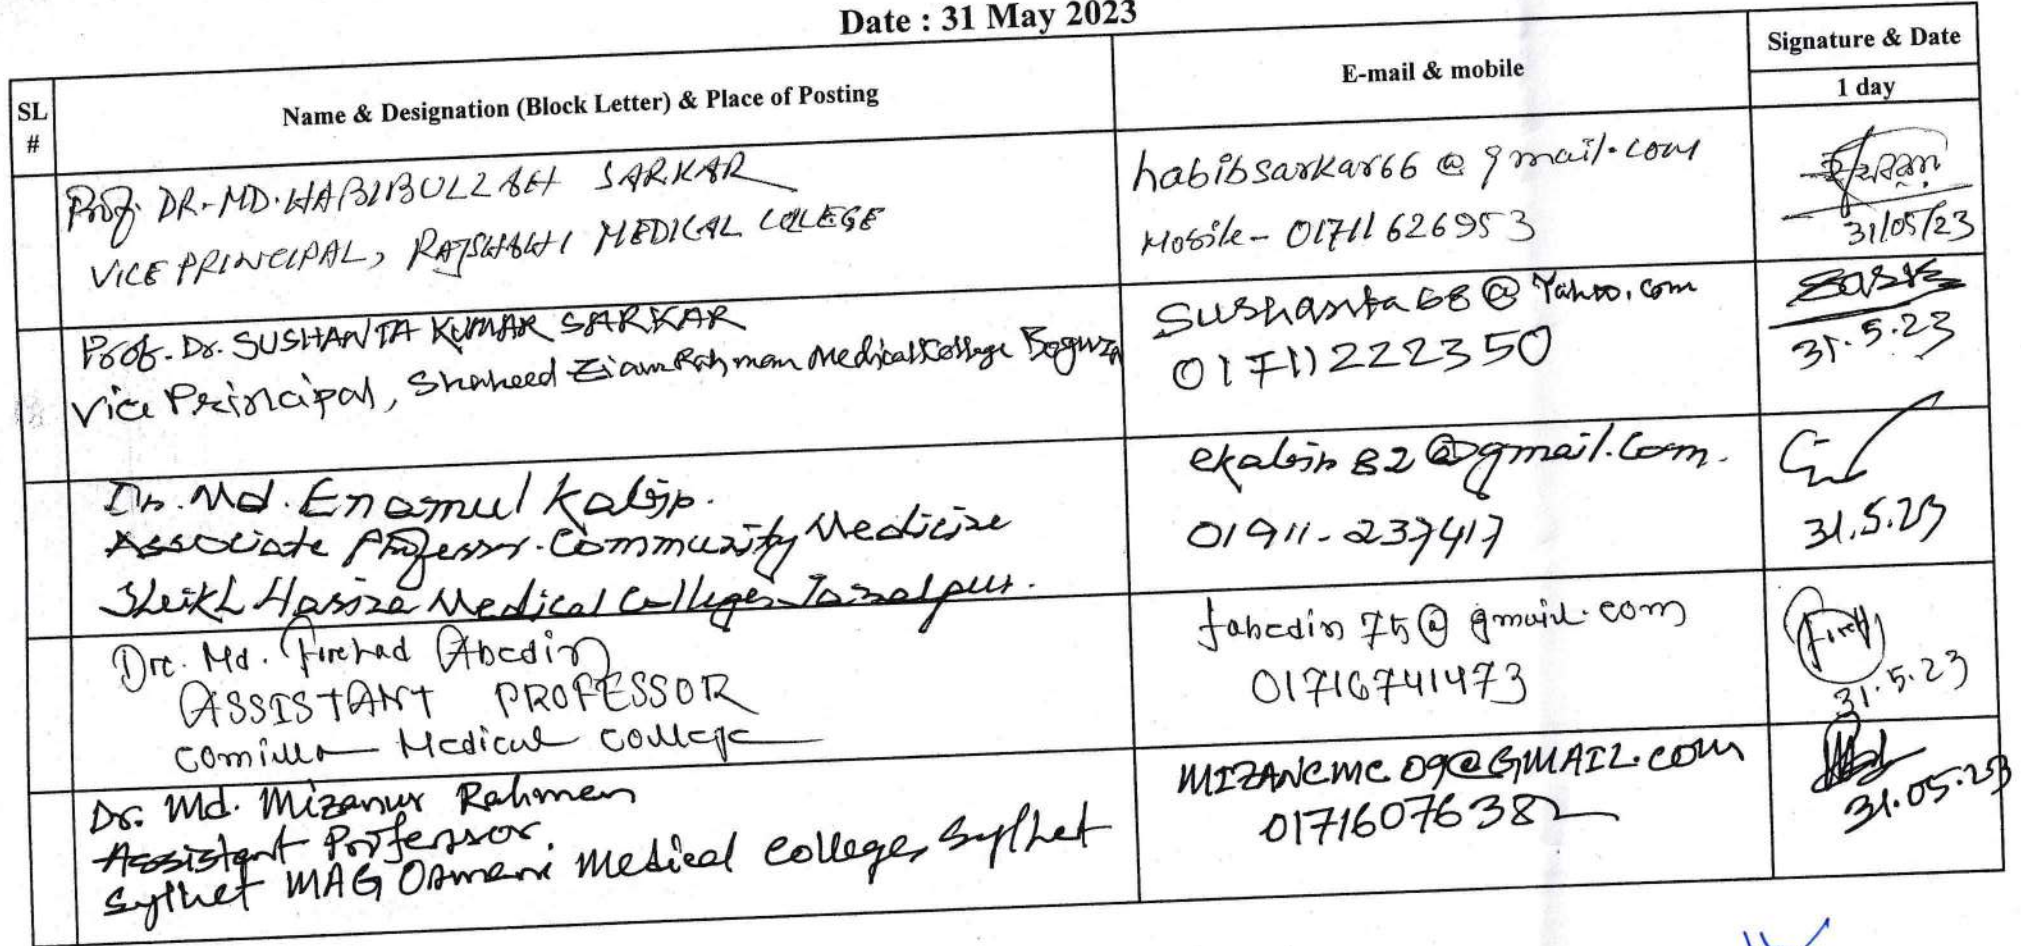 Date : 31 May 2023
SL #
Name & Designation (Block Letter) & Place of Posting
E-mail & mobile
Signature & Date
1 day
Prof. DR. MD. HABIBULLAH SARKAR
VICE PRINCIPAL, RAJSHAHI MEDICAL COLLEGE
habibsarkar66@gmail.com
Mobile - 01711626953
31/05/23
Prof. Dr. SUSHANTA KUMAR SARKAR
Vice Principal, Shaheed Ziaur Rahman Medical College Bogura
Sushanta68@Yahoo.com
01711222350
31.5.23
Dr. Md. Enamul Kabir.
Associate Professor. Community Medicine
Sheikh Hasina Medical College, Jamalpur.
ekabir82@gmail.com.
01911-237417
31.5.23
Dr. Md. Firehad Abedin
ASSISTANT PROFESSOR
Comilla Medical College
fabedin75@gmail.com
01716741473
31.5.23
Dr. Md. Mizanur Rahman
Assistant Professor.
Sylhet MAG Osmani Medical College, Sylhet
MIZANCMC09@GMAIL.com
01716076382
31.05.23